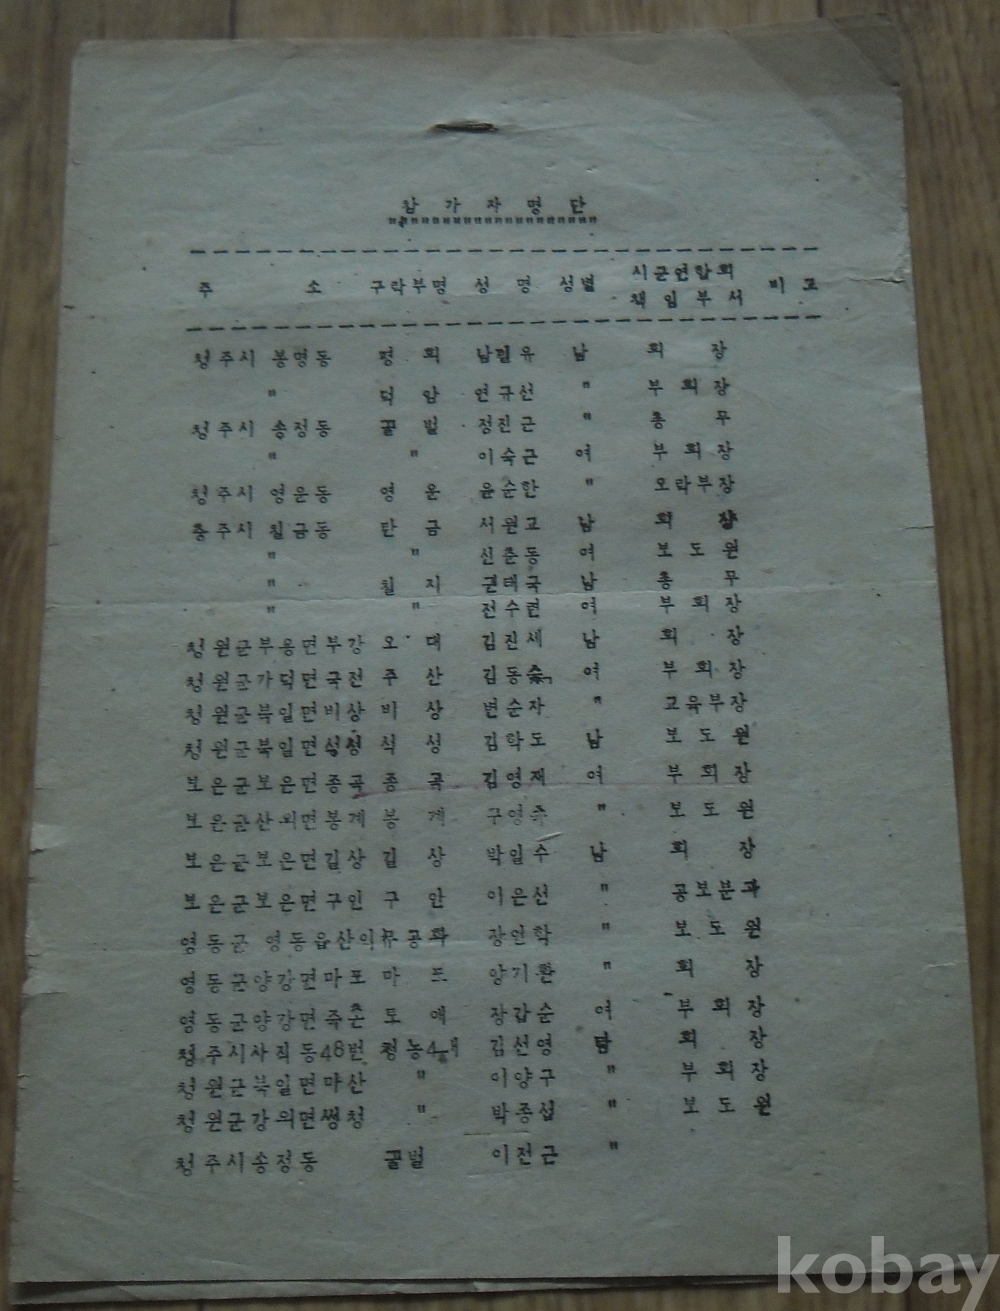 참 가 자 명 단
주 소 구락부명 성 명 성별 시군연합회 책임부서 비고
청주시 봉명동 평 회 남길유 남 회 장
" 덕 암 연규선 " 부회장
청주시 송정동 꿀 벌 정진근 " 총 무
" " 이숙근 여 부회장
청주시 영운동 영 운 윤순한 " 오락부장
충주시 칠금동 탄 금 서원교 남 회 장
" " 신춘동 여 보도원
" 칠 지 권태국 남 총 무
" " 전수련 여 부회장
청원군부용면부강 오 대 김진세 남 회 장
청원군가덕면국전 주 산 김동숙 여 부회장
청원군북일면비상 비 상 변순자 " 교육부장
청원군북일면석성 석 성 김학도 남 보도원
보은군보은면종곡 종 곡 김영재 여 부회장
보은군산외면봉계 봉 계 구영 " 보도원
보은군보은면길상 길 상 박일수 남 회 장
보은군보은면구인 구 안 이은선 " 공보분과
영동군 영동읍산익 무공화 장언학 " 보도원
영동군양강면마포 마 포 양기환 " 회 장
영동군양강면죽촌 도 애 장갑순 여 부회장
청주시사직동48번 청농4 김선영 남 회 장
청원군북일면마산 " 이양구 " 부회장
청원군강외면쌍청 " 박종섭 " 보도원
청주시송정동 꿀벌 이전근 "
kobay